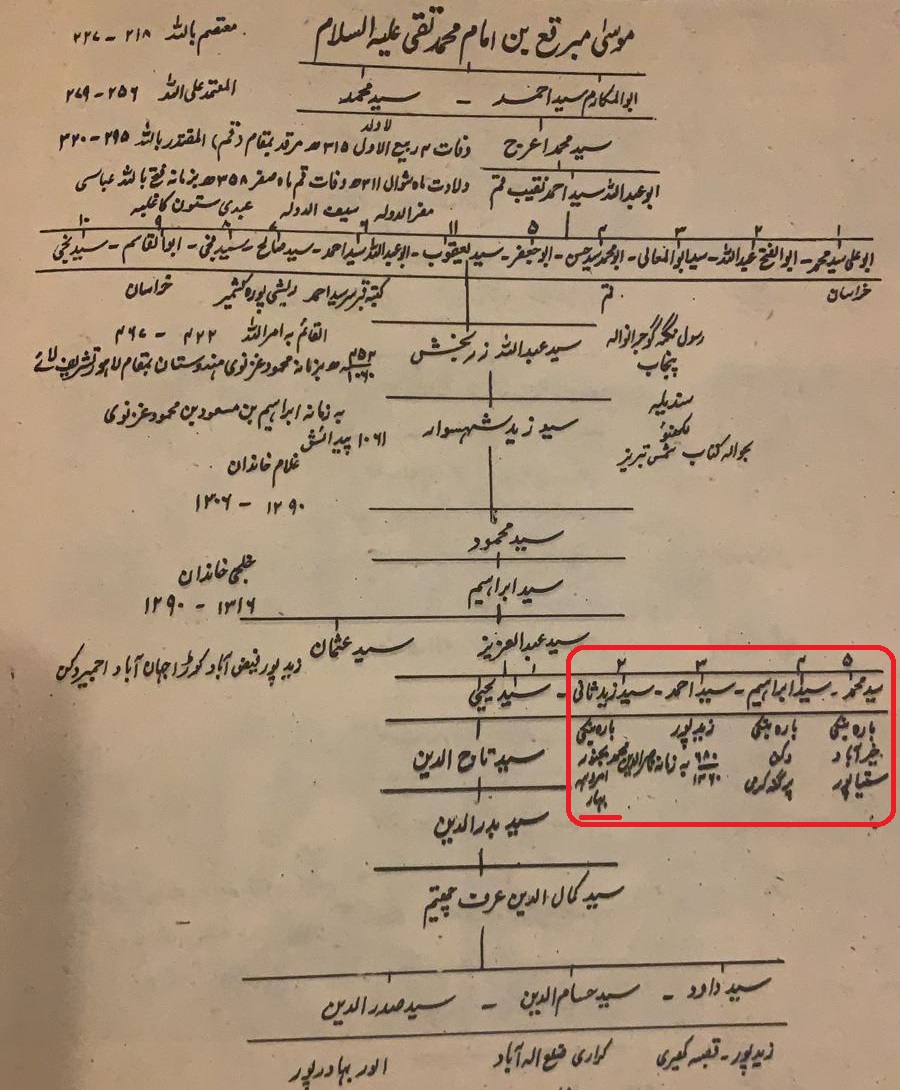 موسیٰ مبرقع بن امام محمد تقی علیہ السلام
معتصم باللہ ۲۱۸ – ۲۲۷
ابوالمکارم سید احمد – سید محمد
لاولد
المعتمد علی اللہ ۲۵۶ – ۲۷۹
سید محمد اعرج
وفات ۳ ربیع الاول ۳۱۵ھ مرقد بمقام (قم) المقتدر باللہ ۲۹۵ – ۳۲۰
ابو عبداللہ سید احمد نقیب قم
ولادت ماہ شوال ۳۱۱ھ وفات قم ماہ صفر ۳۵۸ھ بزمانہ باللہ عباسی
معزالدولہ سیف الدولہ عبدی ستون کا غلبہ
۱ ۲ ۳ ۴ ۵ ۱۱ ۶ ۷ ۸ ۹ ۱۰
ابو علی سید محمد – ابوالفتح عبداللہ – سید ابوالمعالی – ابو محمد سید حسن – ابو جعفر – سید یعقوب – ابو عبداللہ سید احمد – سید صالح – سید تقی – ابوالقاسم – سید یحیٰ
خراسان قم کتبہ قبر سید احمد پورہ کشمیر خراسان
سید عبداللہ زر بخش
رسول گوجرانوالہ
پنجاب
القائم بہ امراللہ ۴۲۲ – ۴۶۷
۴۵۲ / ۱۰۶۰ ھ بزمانہ محمود غزنوی ہندوستان بمقام لاہور تشریف لائے
سید زید شہسوار
سندیلہ
لکھنؤ
بحوالہ کتاب شمس تبریز
بہ زمانہ ابراہیم بن مسعود بن محمود غزنوی
۱۰۶۱ پیدائش
غلام خاندان
۱۲۹۰ – ۱۲۰۶
سید محمود
سید ابراہیم
خلجی خاندان
۱۳۱۶ – ۱۲۹۰
سید عبدالعزیز سید عثمان
زید پور فیض آباد کوڑا جہان آباد اجمیر دکن
۵ ۴ ۳ ۲ ۱
سید محمد – سید ابراہیم – سید احمد – سید زید ثانی – سید یحیٰ
بارہ بنکی بارہ بنکی زید پور بارہ بنکی
خیرآباد دکن ۶۸۰ / ۱۳۶۰ بہ زمانہ ناصرالدین محمد بجنور
سیتاپور پرگنہ امروہہ
بہار
سید تاج الدین
سید بدر الدین
سید کمال الدین عرف
سید داود – سید حسام الدین – سید صدر الدین
زید پور – قصبہ کراری ضلع الہ آباد الور بہادر پور